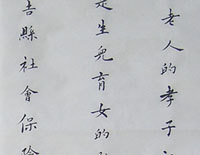 老人的孝子
是生兒育女的
吉縣社會保險